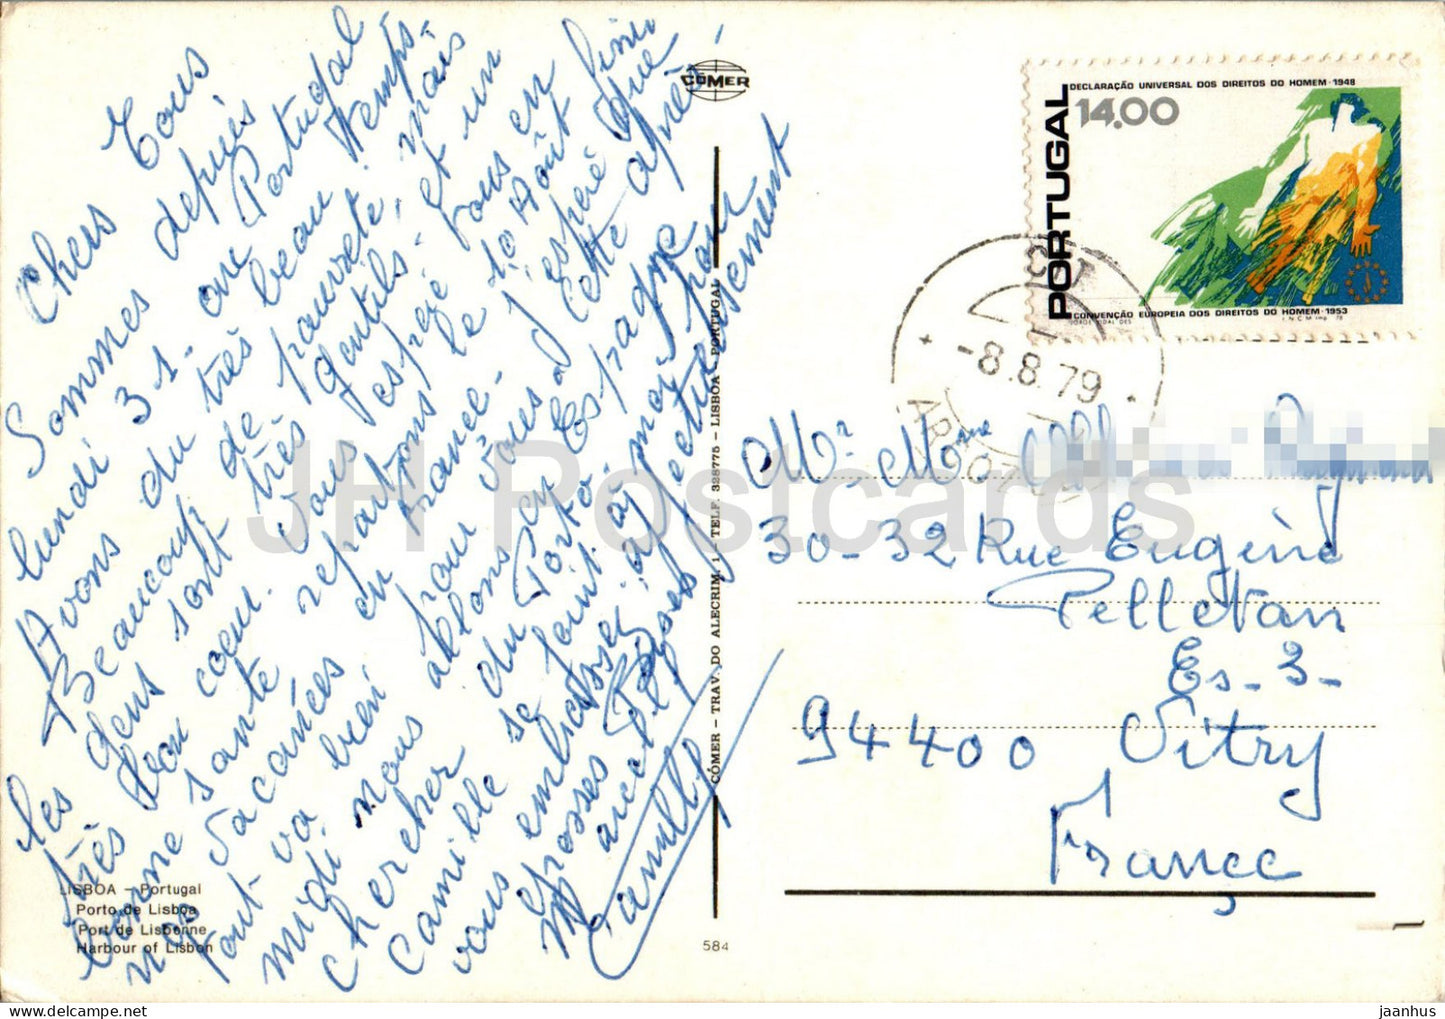 Chers Tous
Sommes depuis
lundi 31 - au Portugal
Avons du très beau temps.
Beaucoup de pauvreté, mais
les gens sont très gentils, et un
très bon coeur. Vous espère tous en
bonne santé repartons le 10 Août finir
nos vacances en France. J'espère que
tout va bien pour vous cette après-
midi nous allons en Espagne
chercher du Porto
Camille se joint à moi pour
vous embrasser affectueusement
Grosses Bises
Marcelle
Camille
LISBOA - Portugal
Porto de Lisboa
Port de Lisbonne
Harbour of Lisbon
CÓMER
CÓMER - TRAV. DO ALECRIM, 1 - TELF. 328775 - LISBOA - PORTUGAL
584
DECLARAÇÃO UNIVERSAL DOS DIREITOS DO HOMEM · 1948
14.00
PORTUGAL
CONVENÇÃO EUROPEIA DOS DIREITOS DO HOMEM · 1953
I.N.C.M. Imp. 78
-8.8.79
Mr. Mme
30-32 Rue Eugène
Pelletan
Es-3-
94400 Vitry
France
JH Postcards
jaanhus